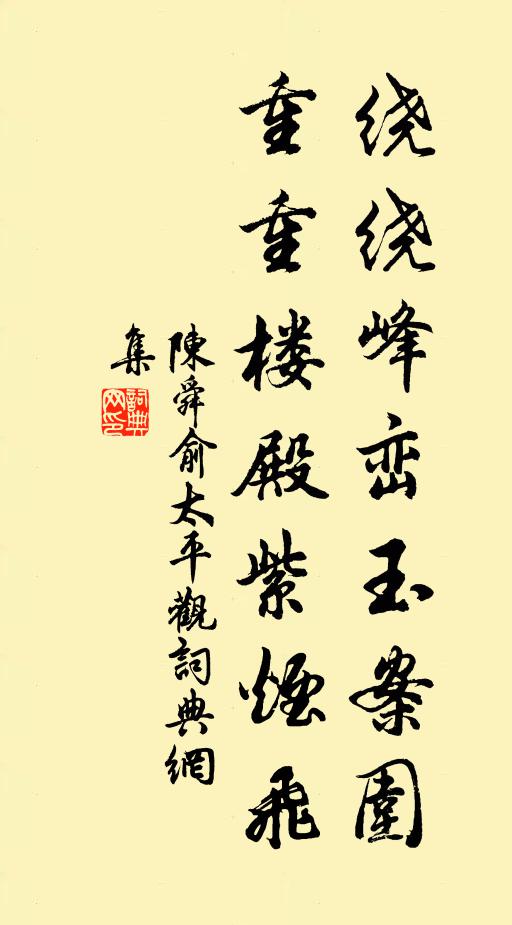 绕绕峰峦玉案圍
重重楼殿紫煙飛
陳舜俞太平觀詞典網
集
詞典网印